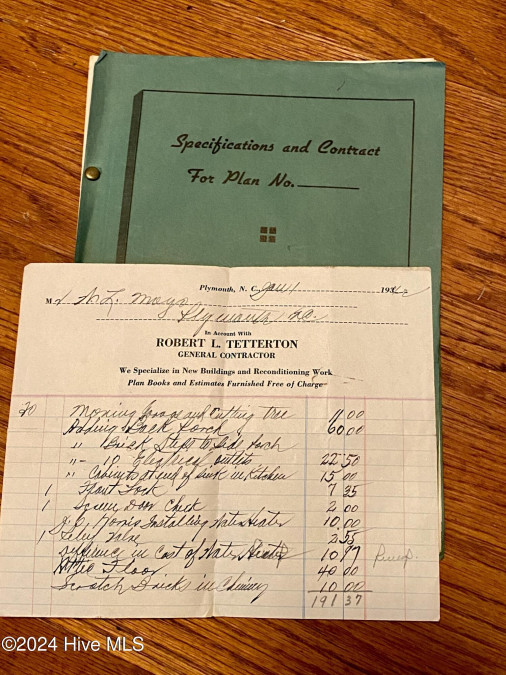 Specifications and Contract
For Plan No.
Plymouth, N. C., Jan 1 194 2
M r A. L. Mayo
Plymouth N.C.
In Account With
ROBERT L. TETTERTON
GENERAL CONTRACTOR
We Specialize in New Buildings and Reconditioning Work
Plan Books and Estimates Furnished Free of Charge
To Moving Garage and Cutting Tree 11 00
Adding Back Porch 60 00
" Brick Steps to Side Porch
" - 10 Electrical outlets 22 50
" Cabinets at end of Sink in Kitchen 15 00
1 Front Lock 7 35
1 Screen Door Check 2 00
Norris Installing Water Heater 10.00
1 Valve 2 55
Difference in Cost of Water Heater 10 97
Attic Floor 40 00
Scratch Bricks in Chimney 10 00
191 37
©2024 Hive MLS